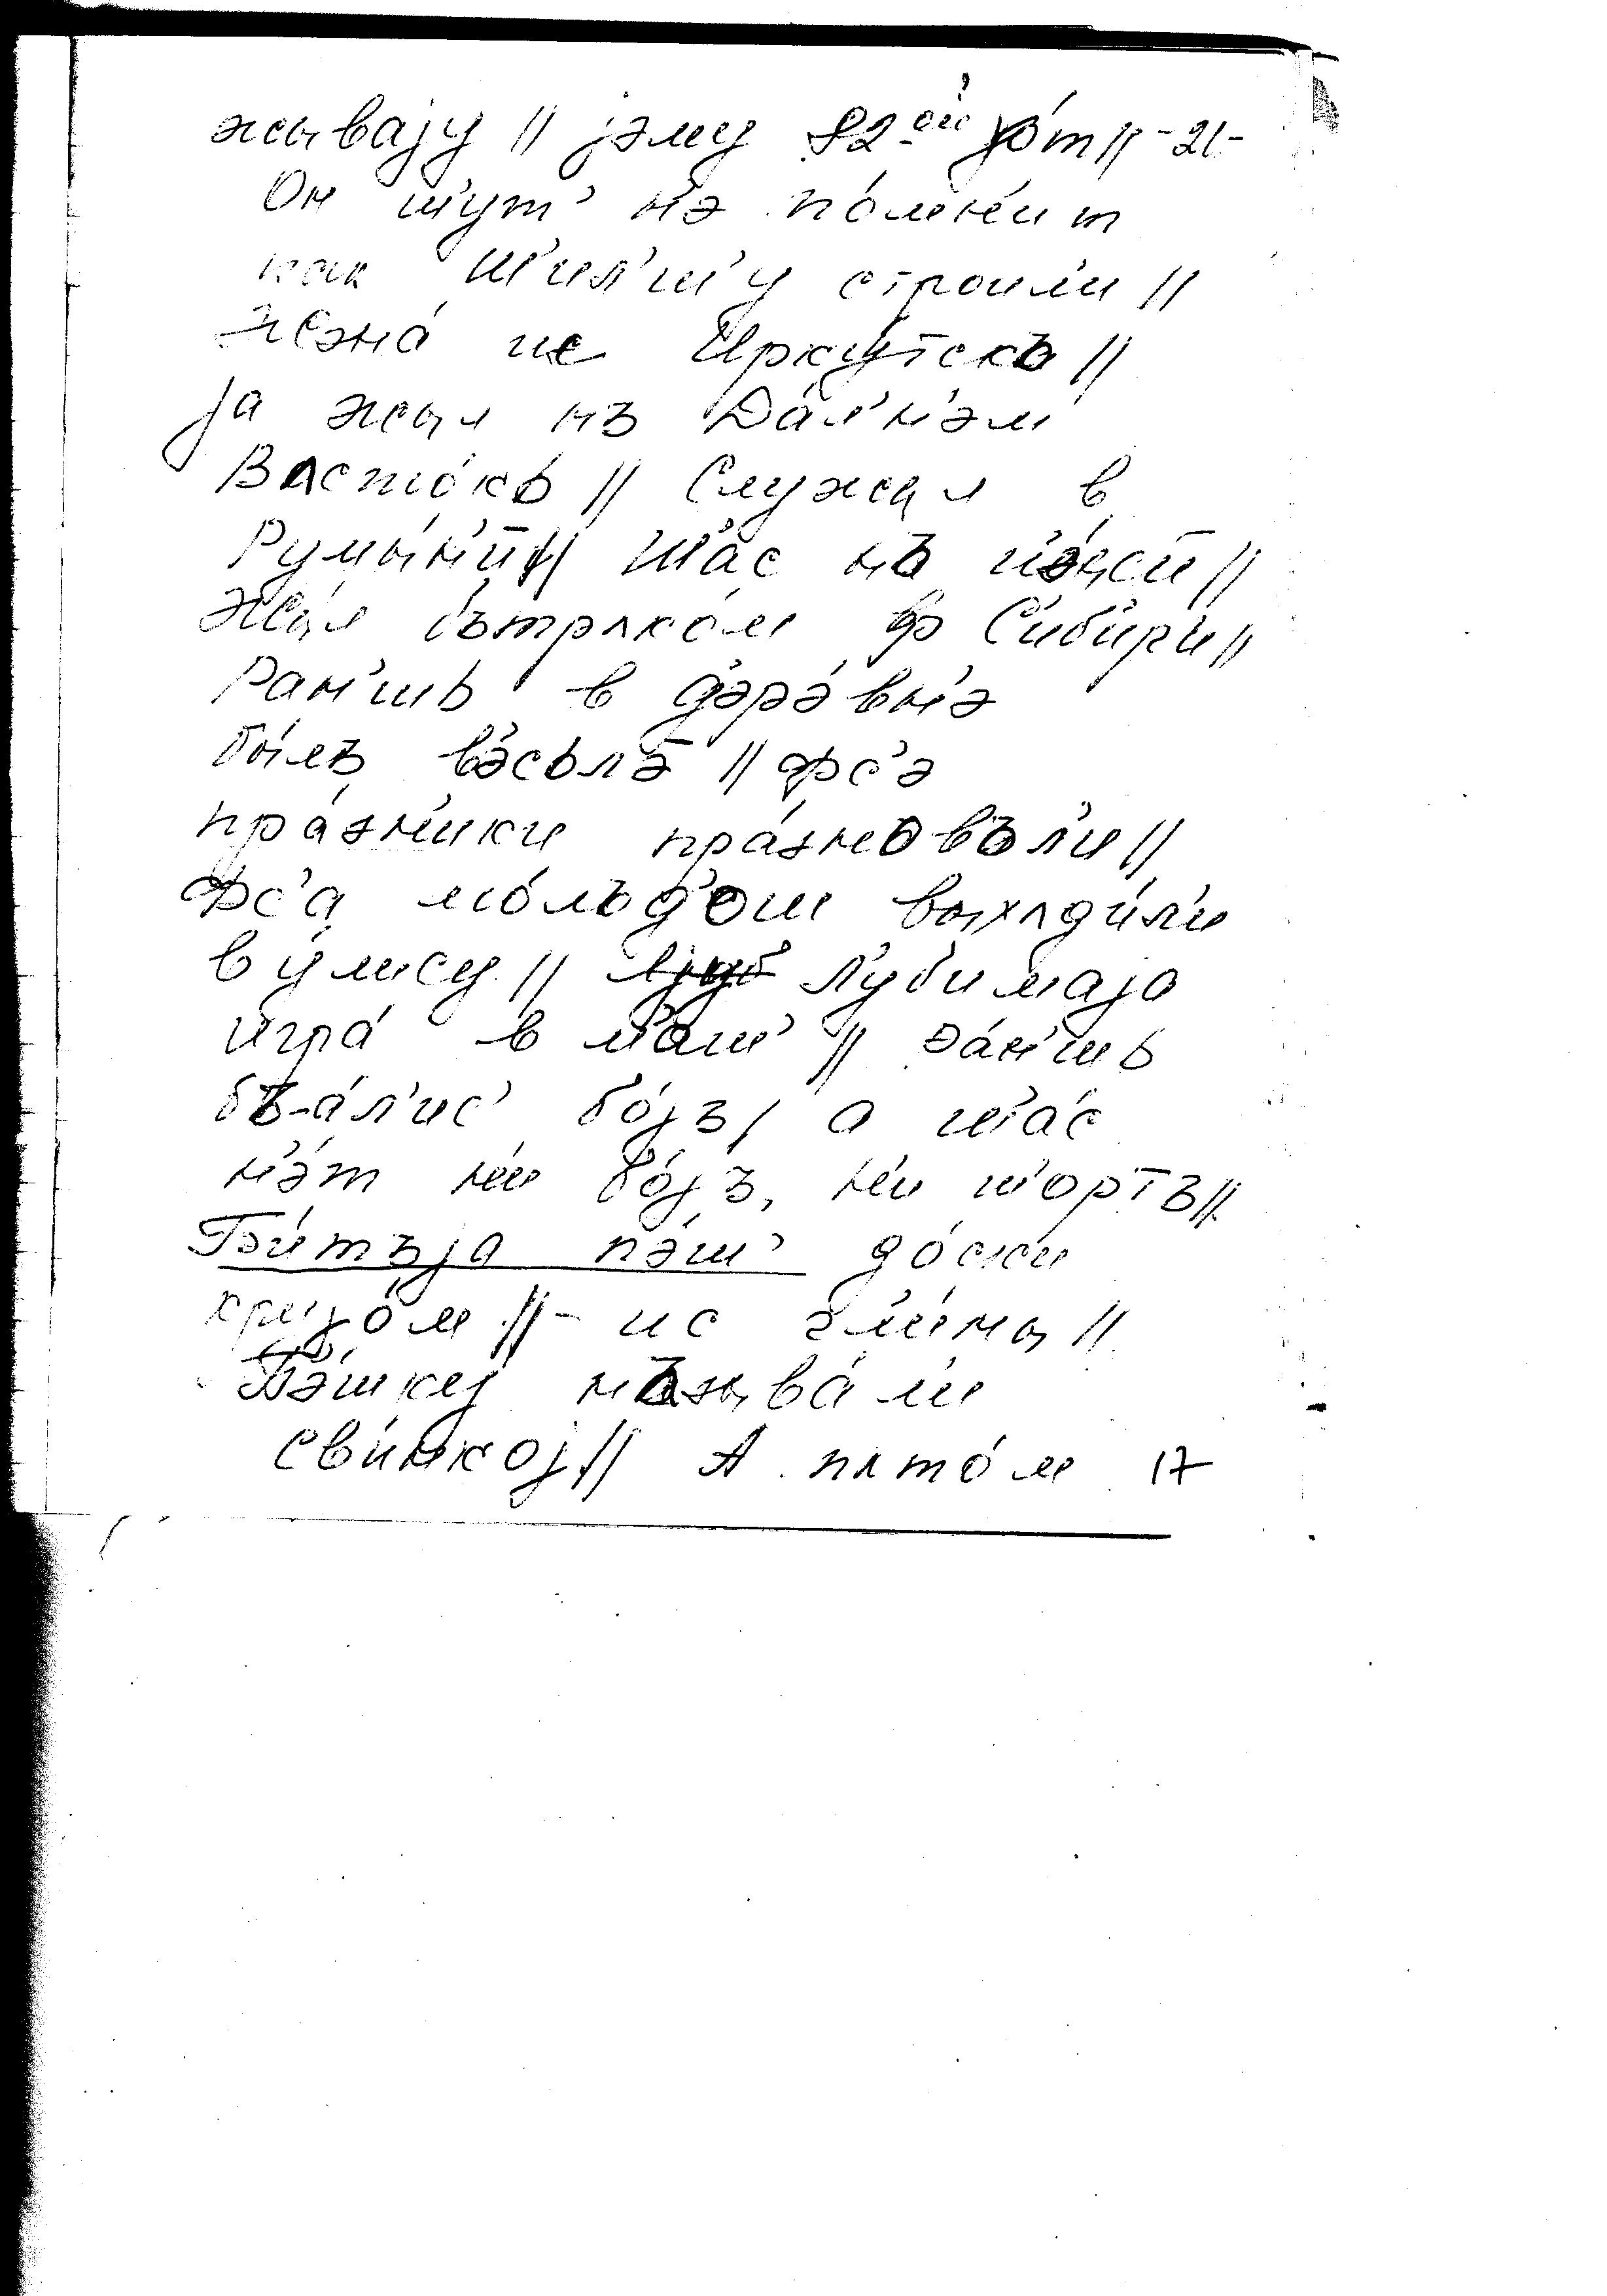 жывајy || јэму 82-ой γо́т || -21-
Он ш'ут' н'э по́мн'ит
как Ш'ил'ш'у строили ||
Жэна́ ис Ирку́тскъ ||
ја жыл нъ Да́л'н'эм
Влсто́кь || Служыл в
Румы́н'ии || ш'ас нъ п'э́нс'ии ||
Жы́л бътрлко́м ф С'иб'ир'и ||
Ран'шь в д'эрэ́вн'э
бы́лъ в'э́сьлъ || фс'э
пра́зн'ик'и пра́зновъл'и ||
Фс'а мо́лъд'ош выхлди́л'и
в у́л'ису || л'уб'имаја
игра́ в м'аш' || ра́н'шь
бъ-а́л'ис' бо́јъ, а ш'а́с
н'э́т н'и бо́јъ, н'и ш'ортъ ||
Б'и́тъја п'эш' до́ск'и
круγо́м || - ис гл'и́ны ||
П'э́шку нъзыва́л'и
св'и́нкој || А плто́м 17